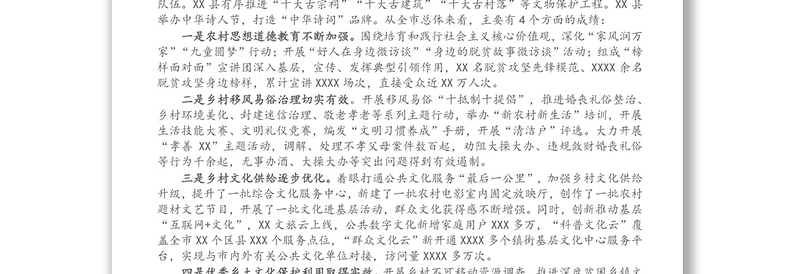 队伍。XX 县有序推进“十大古宗祠”“十大古建筑”“十大古村落”等文物保护工程。XX 县
举办中华诗人节，打造“中华诗词”品牌。从全市总体来看，主要有 4 个方面的成绩：
一是农村思想道德教育不断加强。围绕培育和践行社会主义核心价值观，深化“家风润万
家”“九童圆梦”行动；开展“好人在身边微访谈”“身边的脱贫故事微访谈”活动；组成“榜
样面对面”宣讲团深入基层，宣传、发挥典型引领作用，XX 名脱贫攻坚先锋模范、XXXX 余名
脱贫攻坚身边榜样，累计宣讲 XXXX 场次，直接受众近 XX 万人次。
二是乡村移风易俗治理切实有效。开展移风易俗“十抵制十提倡”，推进婚丧礼俗整治、
乡村环境美化、封建迷信治理、敬老孝老等系列主题行动，举办“新农村新生活”培训，开展
生活技能大赛、文明礼仪竞赛，编发“文明习惯养成”手册，开展“清洁户”评选。大力开展
“孝善 XX”主题活动，调解、处理不孝父母案件数百起，劝阻大操大办、违规敛财婚丧礼俗
等行为千余起，无事办酒、大操大办等突出问题得到有效遏制。
三是乡村文化供给逐步优化。着眼打通公共文化服务“最后一公里”，加强乡村文化供给
升级，提升了一批综合文化服务中心，新建了一批农村电影室内固定放映厅，创作了一批农村
题材文艺节目，开展了一批文化进基层活动，群众文化获得感不断增强。同时，创新推动基层
“互联网+文化”，XX 文旅云上线，公共数字文化新增家庭用户 XXX 多万，“科普文化云”覆
盖全市 XX 个区县 XXX 个服务点位，“群众文化云”新开通 XXXX 多个镇街基层文化中心服务平
台，实现与市内外有关公共文化单位对接，访问量 XXXX 多万次。
四是优秀乡土文化保护利用取得实效。开展乡村不可移动资源调查，推进深度贫困乡镇文